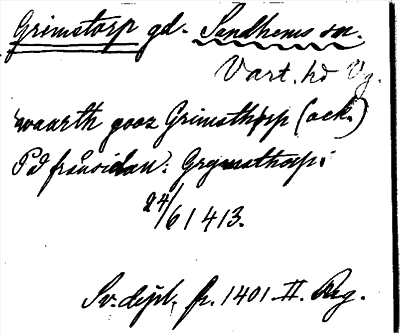 Grimstorp gd. Sandhems sn.
Vart. hd Vg.
waarth gooz Grimsthorp (ack.)
På frånsidan: Grymsthorp:
24/6 1413.
Sv. dipl. fr. 1401 II. Reg.